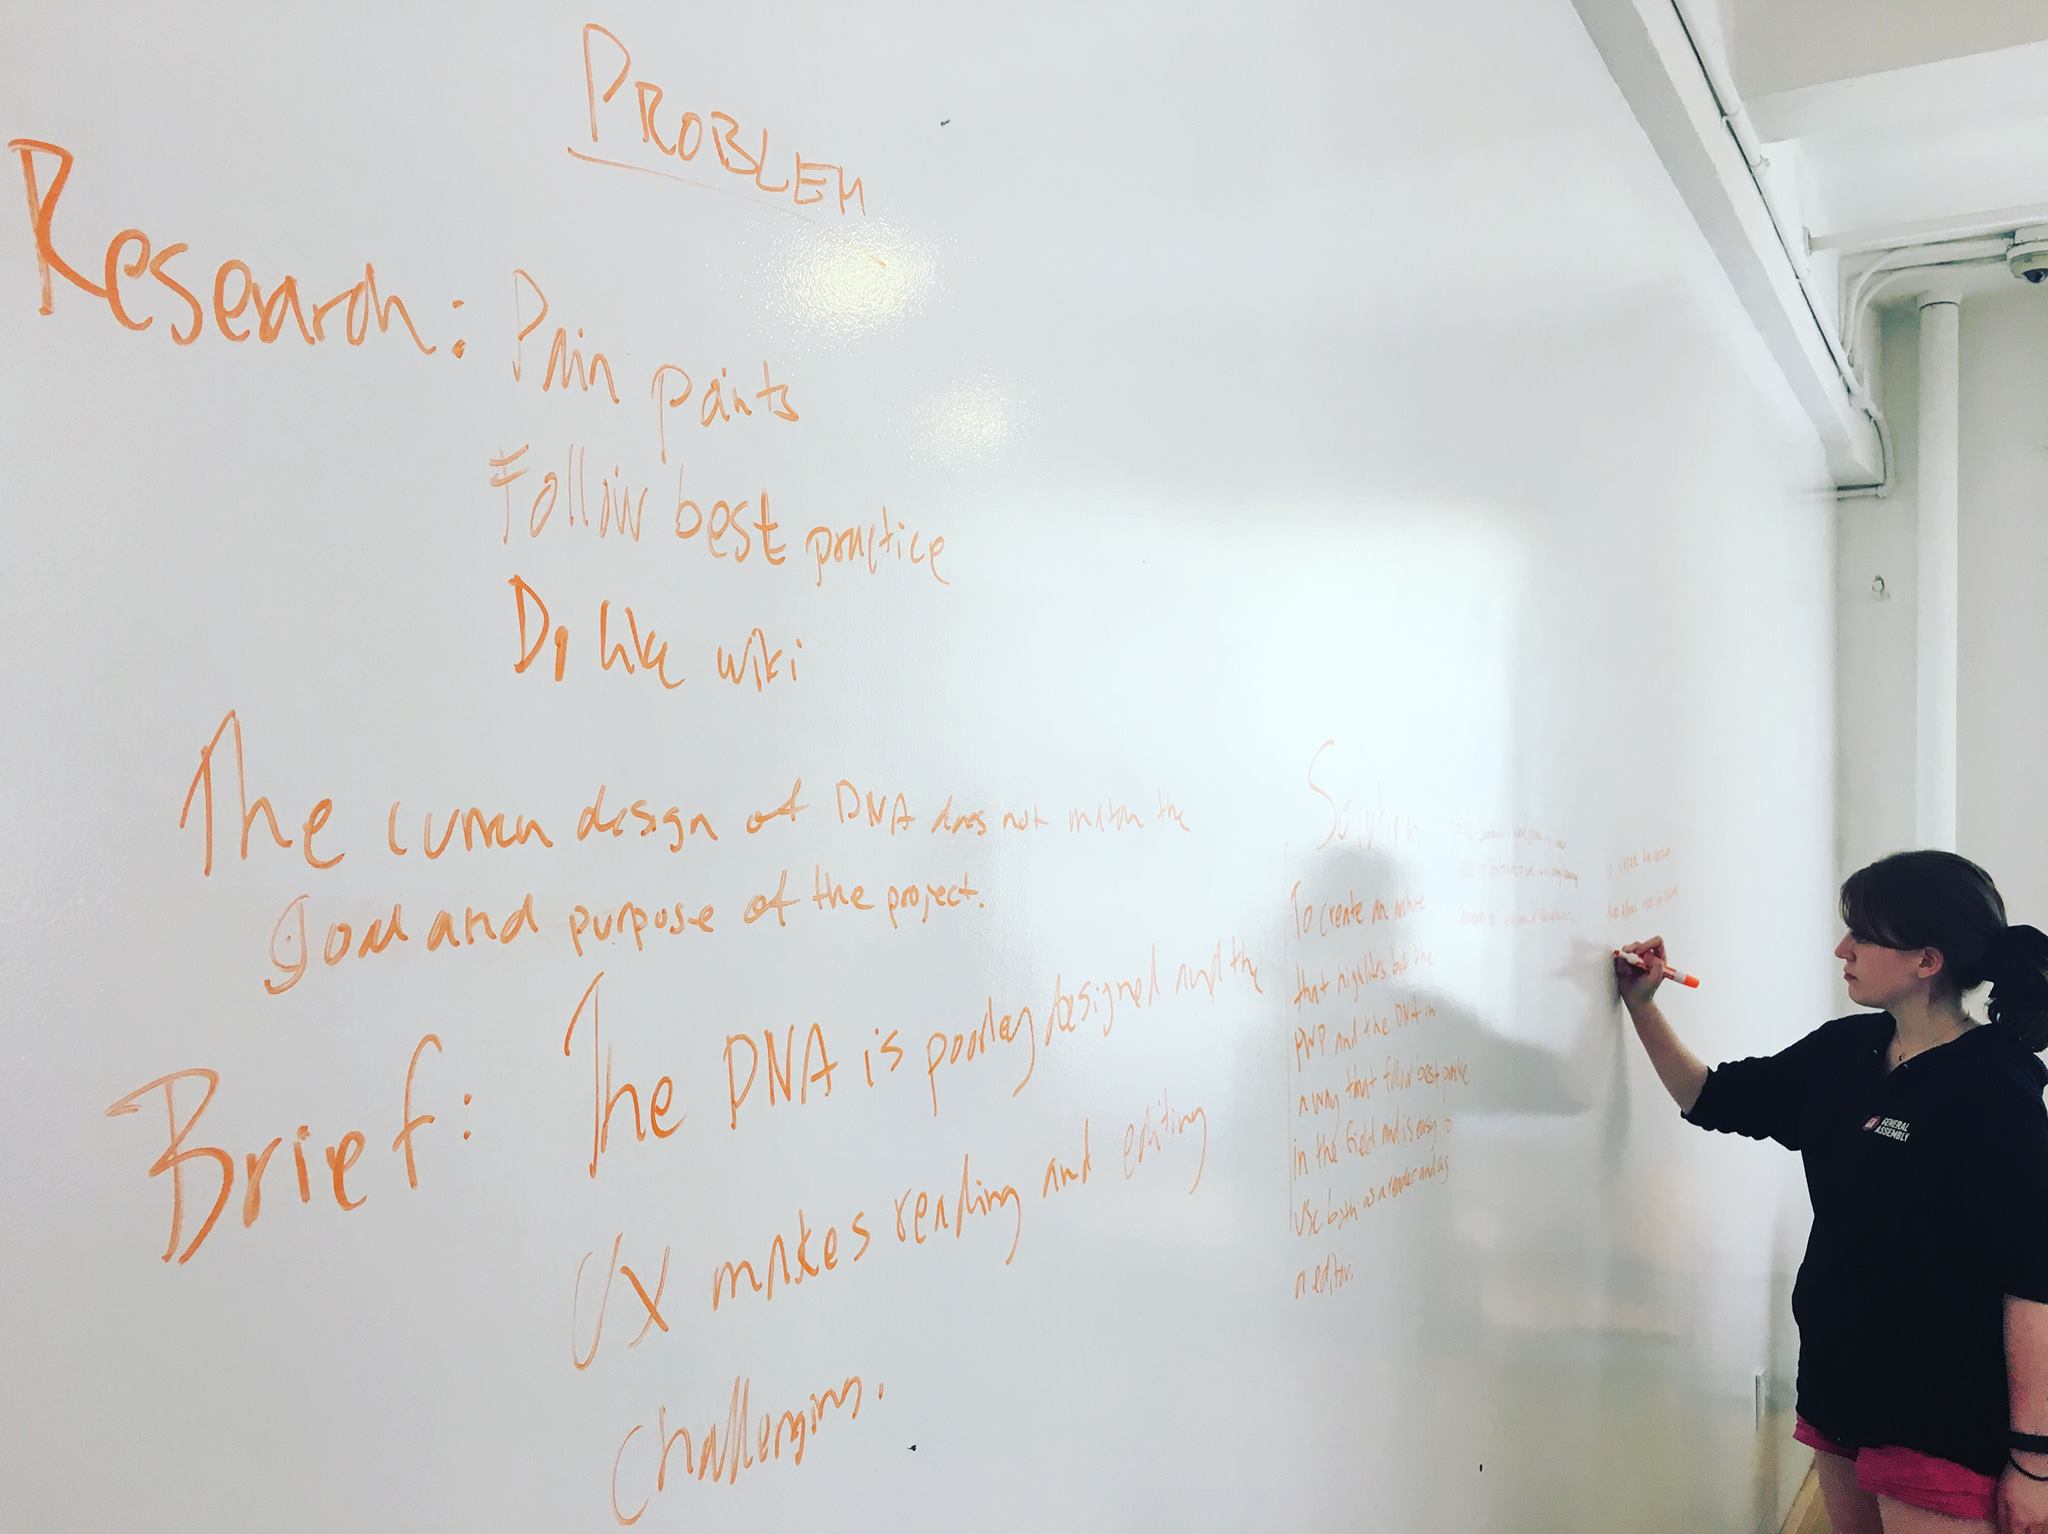 PROBLEM
Research: Pain points
Follow best practice
Do like wiki
The curren design of DNA does not match the
goal and purpose of the project.
Brief: The DNA is poorley designed and the
UX makes reading and editing
challenging.
Solution
To create an archive
that highlites both the
PWP and the DNA in
a way that follow best
in the field and is easy to
use both as a reader and as
a editor.
GENERAL
ASSEMBLY